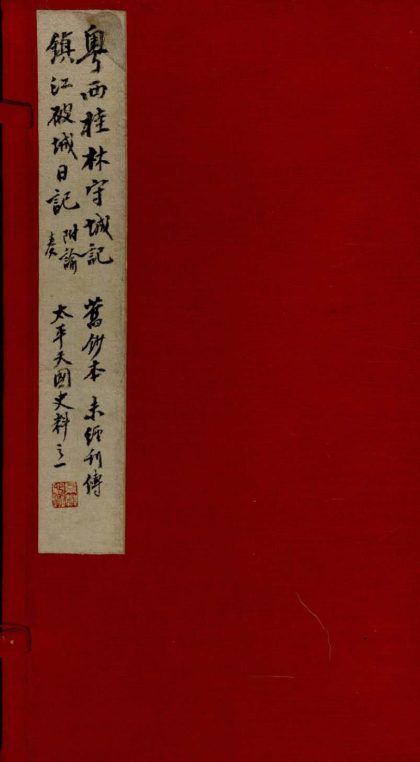 粤西桂林守城記
鎮江破城日記 附諭奏
舊鈔本 未經刊傳
太平天國史料之一